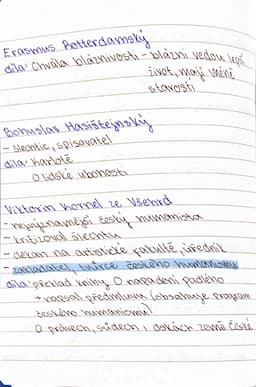 Erasmus Rotterdamský
díla: Chvála bláznivosti - blázni vedou lepší
život, mají méně
starostí
Bohuslav Hasištejnský
- šlechtic, spisovatel
díla:
O lidské
Viktorin Kornel ze Všehrd
- nejvýznamnější český humanista
- kritizoval šlechtu
- děkan na artistické fakultě, úředník
- zakladatel, tvůrce českého humanismu
díla: překlad knihy O napadení padlého
+ napsal předmluvu (obsahuje program
českého humanismu)
O právech, súdech i dskách země české